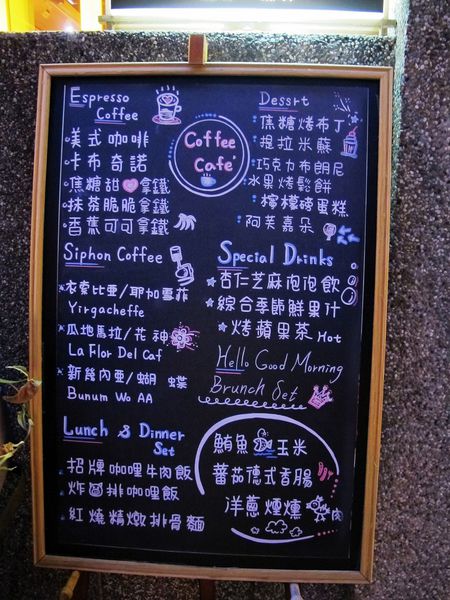 Espresso
Coffee
美式咖啡
卡布奇諾
焦糖甜拿鐵
抹茶脆脆拿鐵
香蕉可可拿鐵
Coffee
Cafe'
Dessrt
焦糖烤布丁
提拉米蘇
巧克力布朗尼
水果烤鬆餅
檸檬磚蛋糕
阿芙嘉朵
Siphon Coffee
衣索比亞/耶加雪菲
Yirgacheffe
瓜地馬拉/花神
La Flor Del Caf
新幾內亞/蝴蝶
Bunum Wo AA
Special Drinks
杏仁芝麻泡泡飲
綜合季節鮮果汁
烤蘋果茶 Hot
Hello Good Morning
Brunch Set
鮪魚玉米
蕃茄德式香腸
洋蔥煙燻肉
Lunch & Dinner
Set
招牌咖哩牛肉飯
炸排咖哩飯
紅燒精燉排骨麵